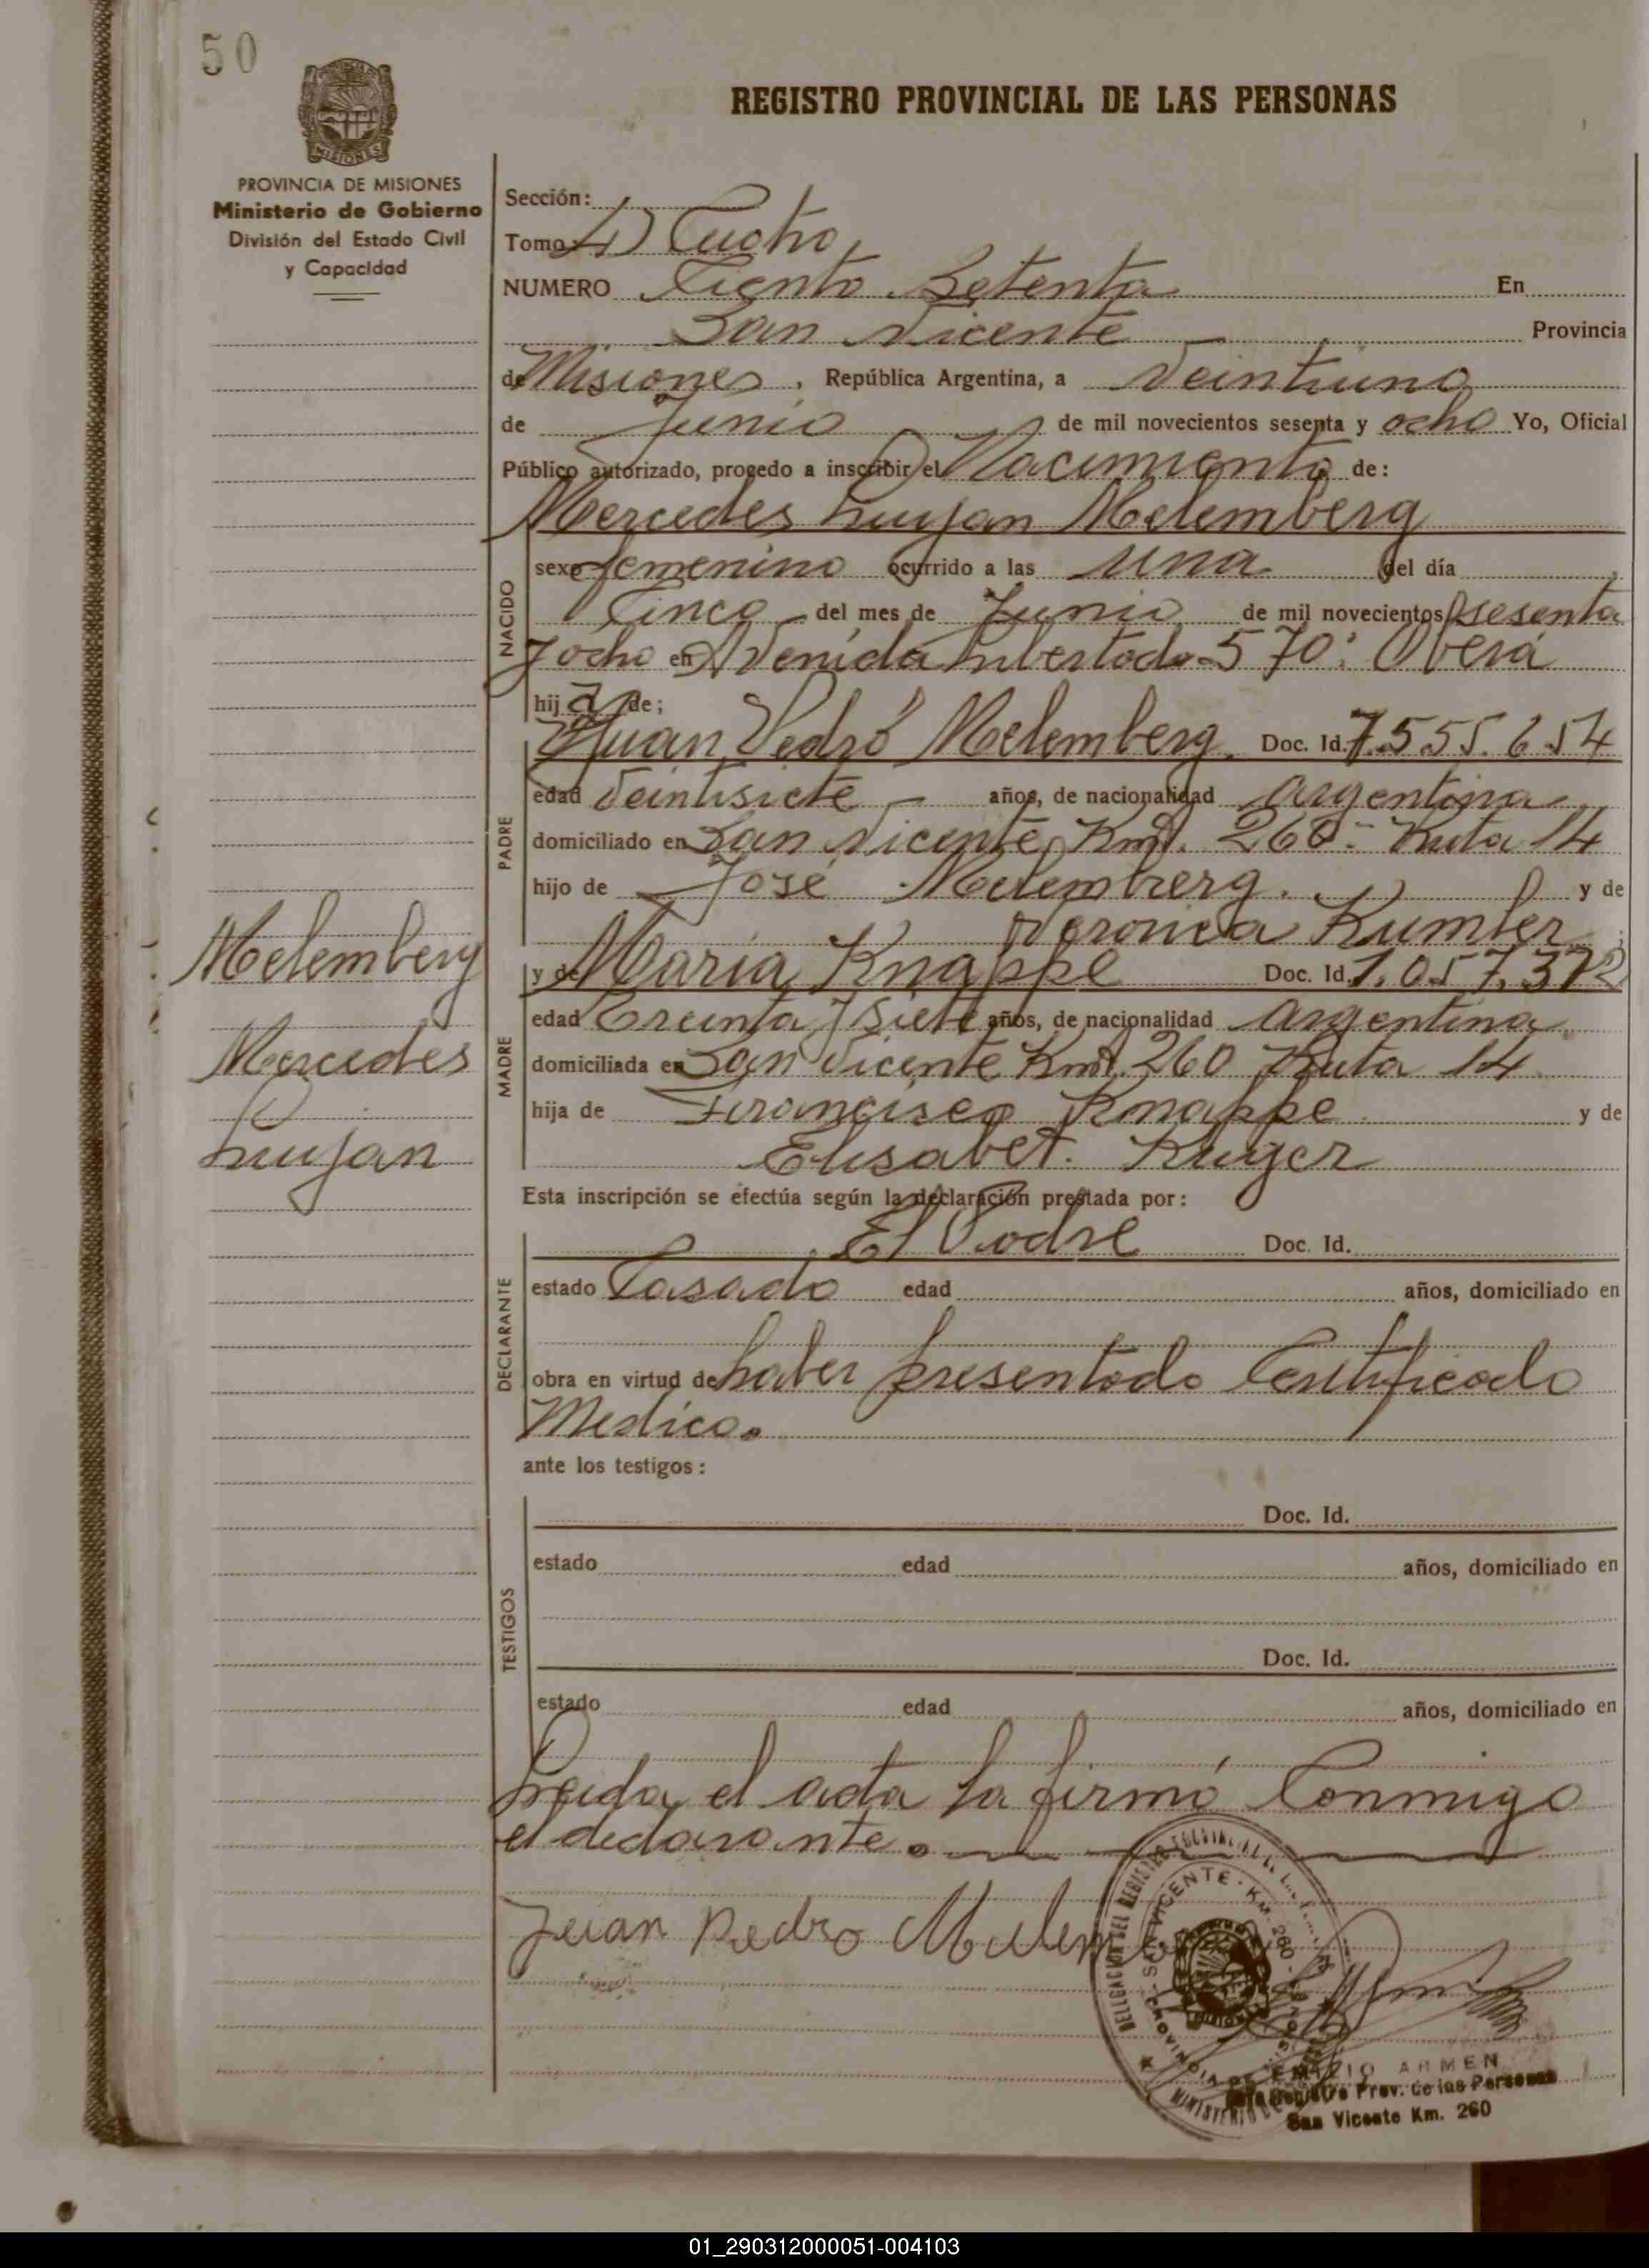 50
REGISTRO PROVINCIAL DE LAS PERSONAS
PROVINCIA DE MISIONES
Ministerio de Gobierno
División del Estado Civil
y Capacidad
Sección:
Tomo 4) Cuatro
NUMERO Ciento Setenta En
San Vicente Provincia
de Misiones, República Argentina, a Veintiuno
de Junio de mil novecientos sesenta y ocho Yo, Oficial
Público autorizado, procedo a inscribir el Nacimiento de:
Mercedes Lujan Melemberg
NACIDO
sexo femenino ocurrido a las una del día
Cinco del mes de Junio de mil novecientos sesenta
y ocho en Avenida Libertado 570: Oberá
hija de;
PADRE
Juan Pedro Melemberg Doc. Id. 7.555.654
edad Veintisiete años, de nacionalidad argentina
domiciliado en San Vicente Kmt. 260- Ruta 14
hijo de José Melemberg. y de
Veronica Kumler
MADRE
y de Maria Knappe Doc. Id. 1.057.372
edad Treinta y Siete años, de nacionalidad argentina
domiciliada en San Vicente Kmt. 260 Ruta 14
hija de Francisco Knappe y de
Elisabet. Kruger
Melemberg
Mercedes
Lujan
Esta inscripción se efectúa según la declaración prestada por:
DECLARANTE
El Padre Doc. Id.
estado Casado edad años, domiciliado en
obra en virtud de haber presentado Certificado
Medico.
ante los testigos:
TESTIGOS
Doc. Id.
estado edad años, domiciliado en
Doc. Id.
estado edad años, domiciliado en
Leida el acta la firmó Conmigo
el declarante.
Juan Pedro
DELEGACION DEL REGISTRO PROVINCIAL DE LAS
SAN VICENTE - KM. 260
PROVINCIA DE
MINISTERIO
ARMEN
Registro Prov. de las Personas
San Vicente Km. 260
01_290312000051-004103